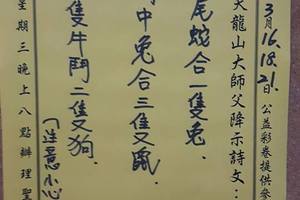 3月16.18.21. 公益彩卷提供參
天龍山大師父降示詩文：
尾蛇合一隻兔.
中兔合三隻又鼠.
隻牛鬥二隻又狗.
(注意小心
星期三晚上八點辦理聖